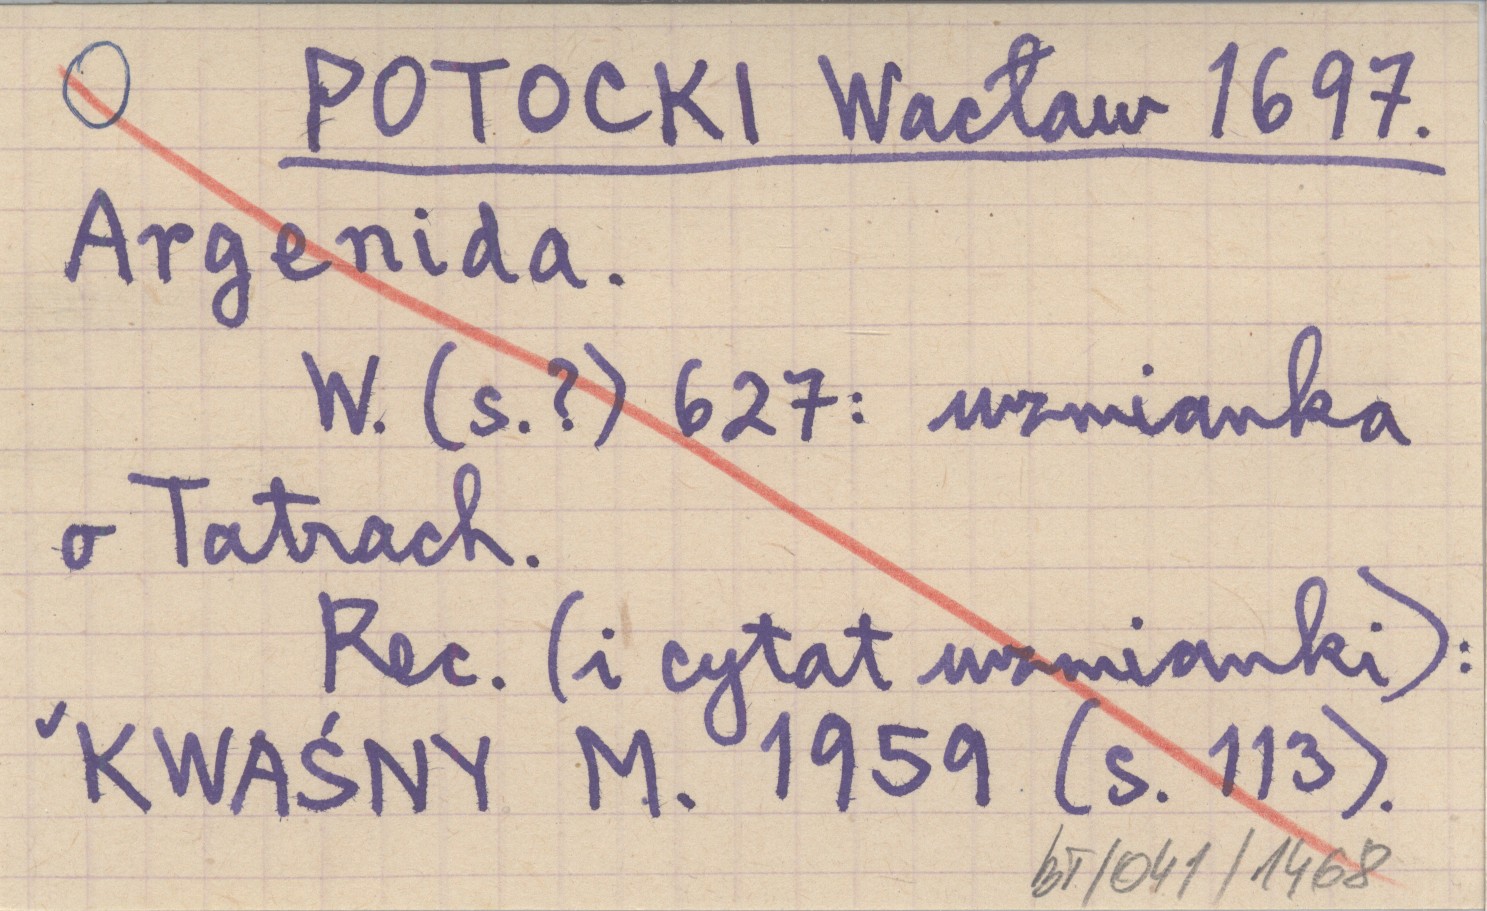 POTOCKI Wacław 1697.
Argenida.
W. (s.?) 627: wzmianka
o Tatrach.
Rec. (i cytat wzmianki):
KWAŚNY M. 1959 (s. 113).
BT/041/1468